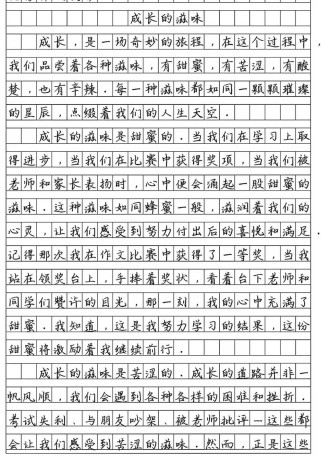 成长的滋味
成长，是一场奇妙的旅程，在这个过程中，
我们品尝着各种滋味，有甜蜜，有苦涩，有酸
楚，也有辛辣．每一种滋味都如同一颗颗璀璨
的星辰，点缀着我们的人生天空．
成长的滋味是甜蜜的．当我们在学习上取
得进步，当我们在比赛中获得奖项，当我们被
老师和家长表扬时，心中便会涌起一股甜蜜的
滋味．这种滋味如同蜂蜜一般，滋润着我们的
心灵，让我们感受到努力付出后的喜悦和满足．
记得那次我在作文比赛中获得了一等奖，当我
站在领奖台上，手捧着奖状，看着台下老师和
同学们赞许的目光，那一刻，我的心中充满了
甜蜜．我知道，这是我努力学习的结果，这份
甜蜜将激励着我继续前行．
成长的滋味是苦涩的．成长的道路并非一
帆风顺，我们会遇到各种各样的困难和挫折．
考试失利，与朋友吵架，被老师批评—这些都
会让我们感受到苦涩的滋味．然而，正是这些